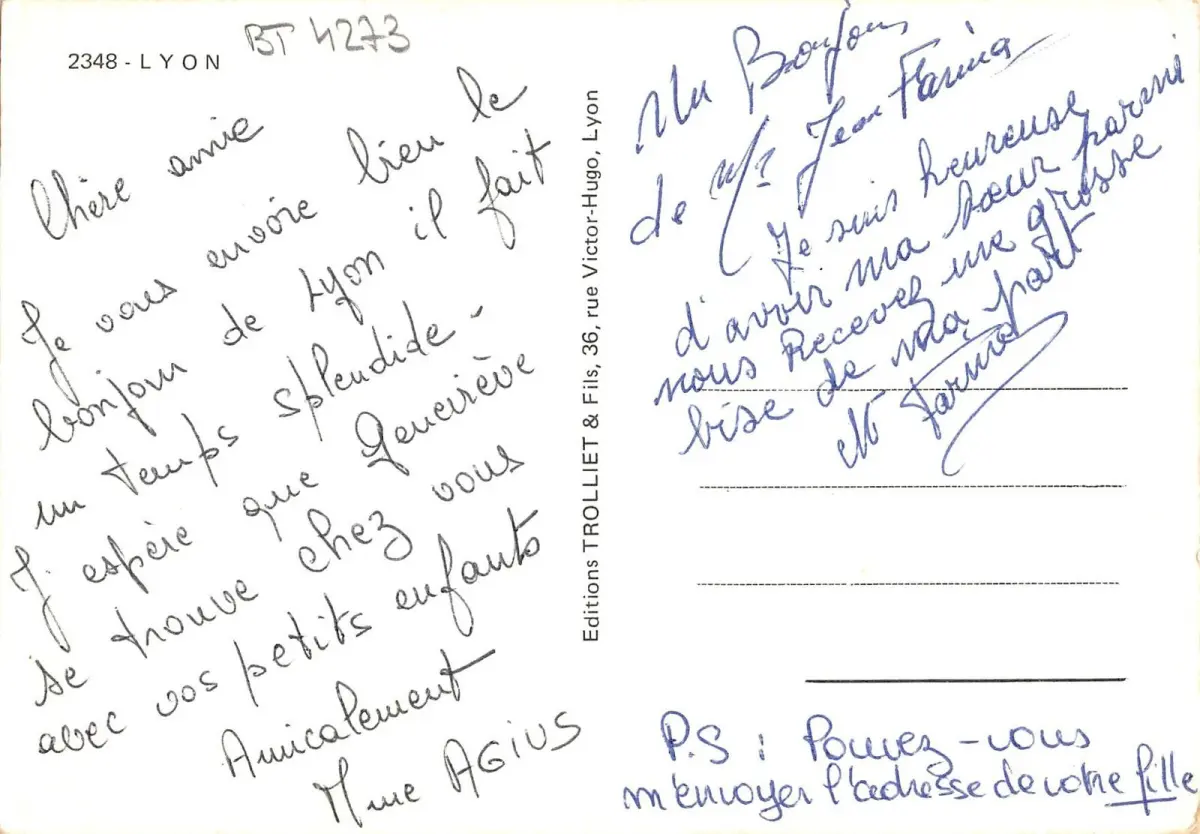 2348 - LYON
BT 4273
Chère amie
Je vous envoie bien le
bonjour de Lyon il fait
un temps splendide -
J'espère que Geneviève
se trouve chez vous
avec vos petits enfants
Amicalement
Mme AGIUS
Editions TROLLIET & Fils, 36, rue Victor-Hugo, Lyon
Un Bonjour
de Mr Jean Farina
Je suis heureuse
d'avoir ma sœur parmi
nous Recevez une grosse
bise de ma part
M Farina
P.S : Pouvez-vous
m'envoyer l'adresse de votre fille